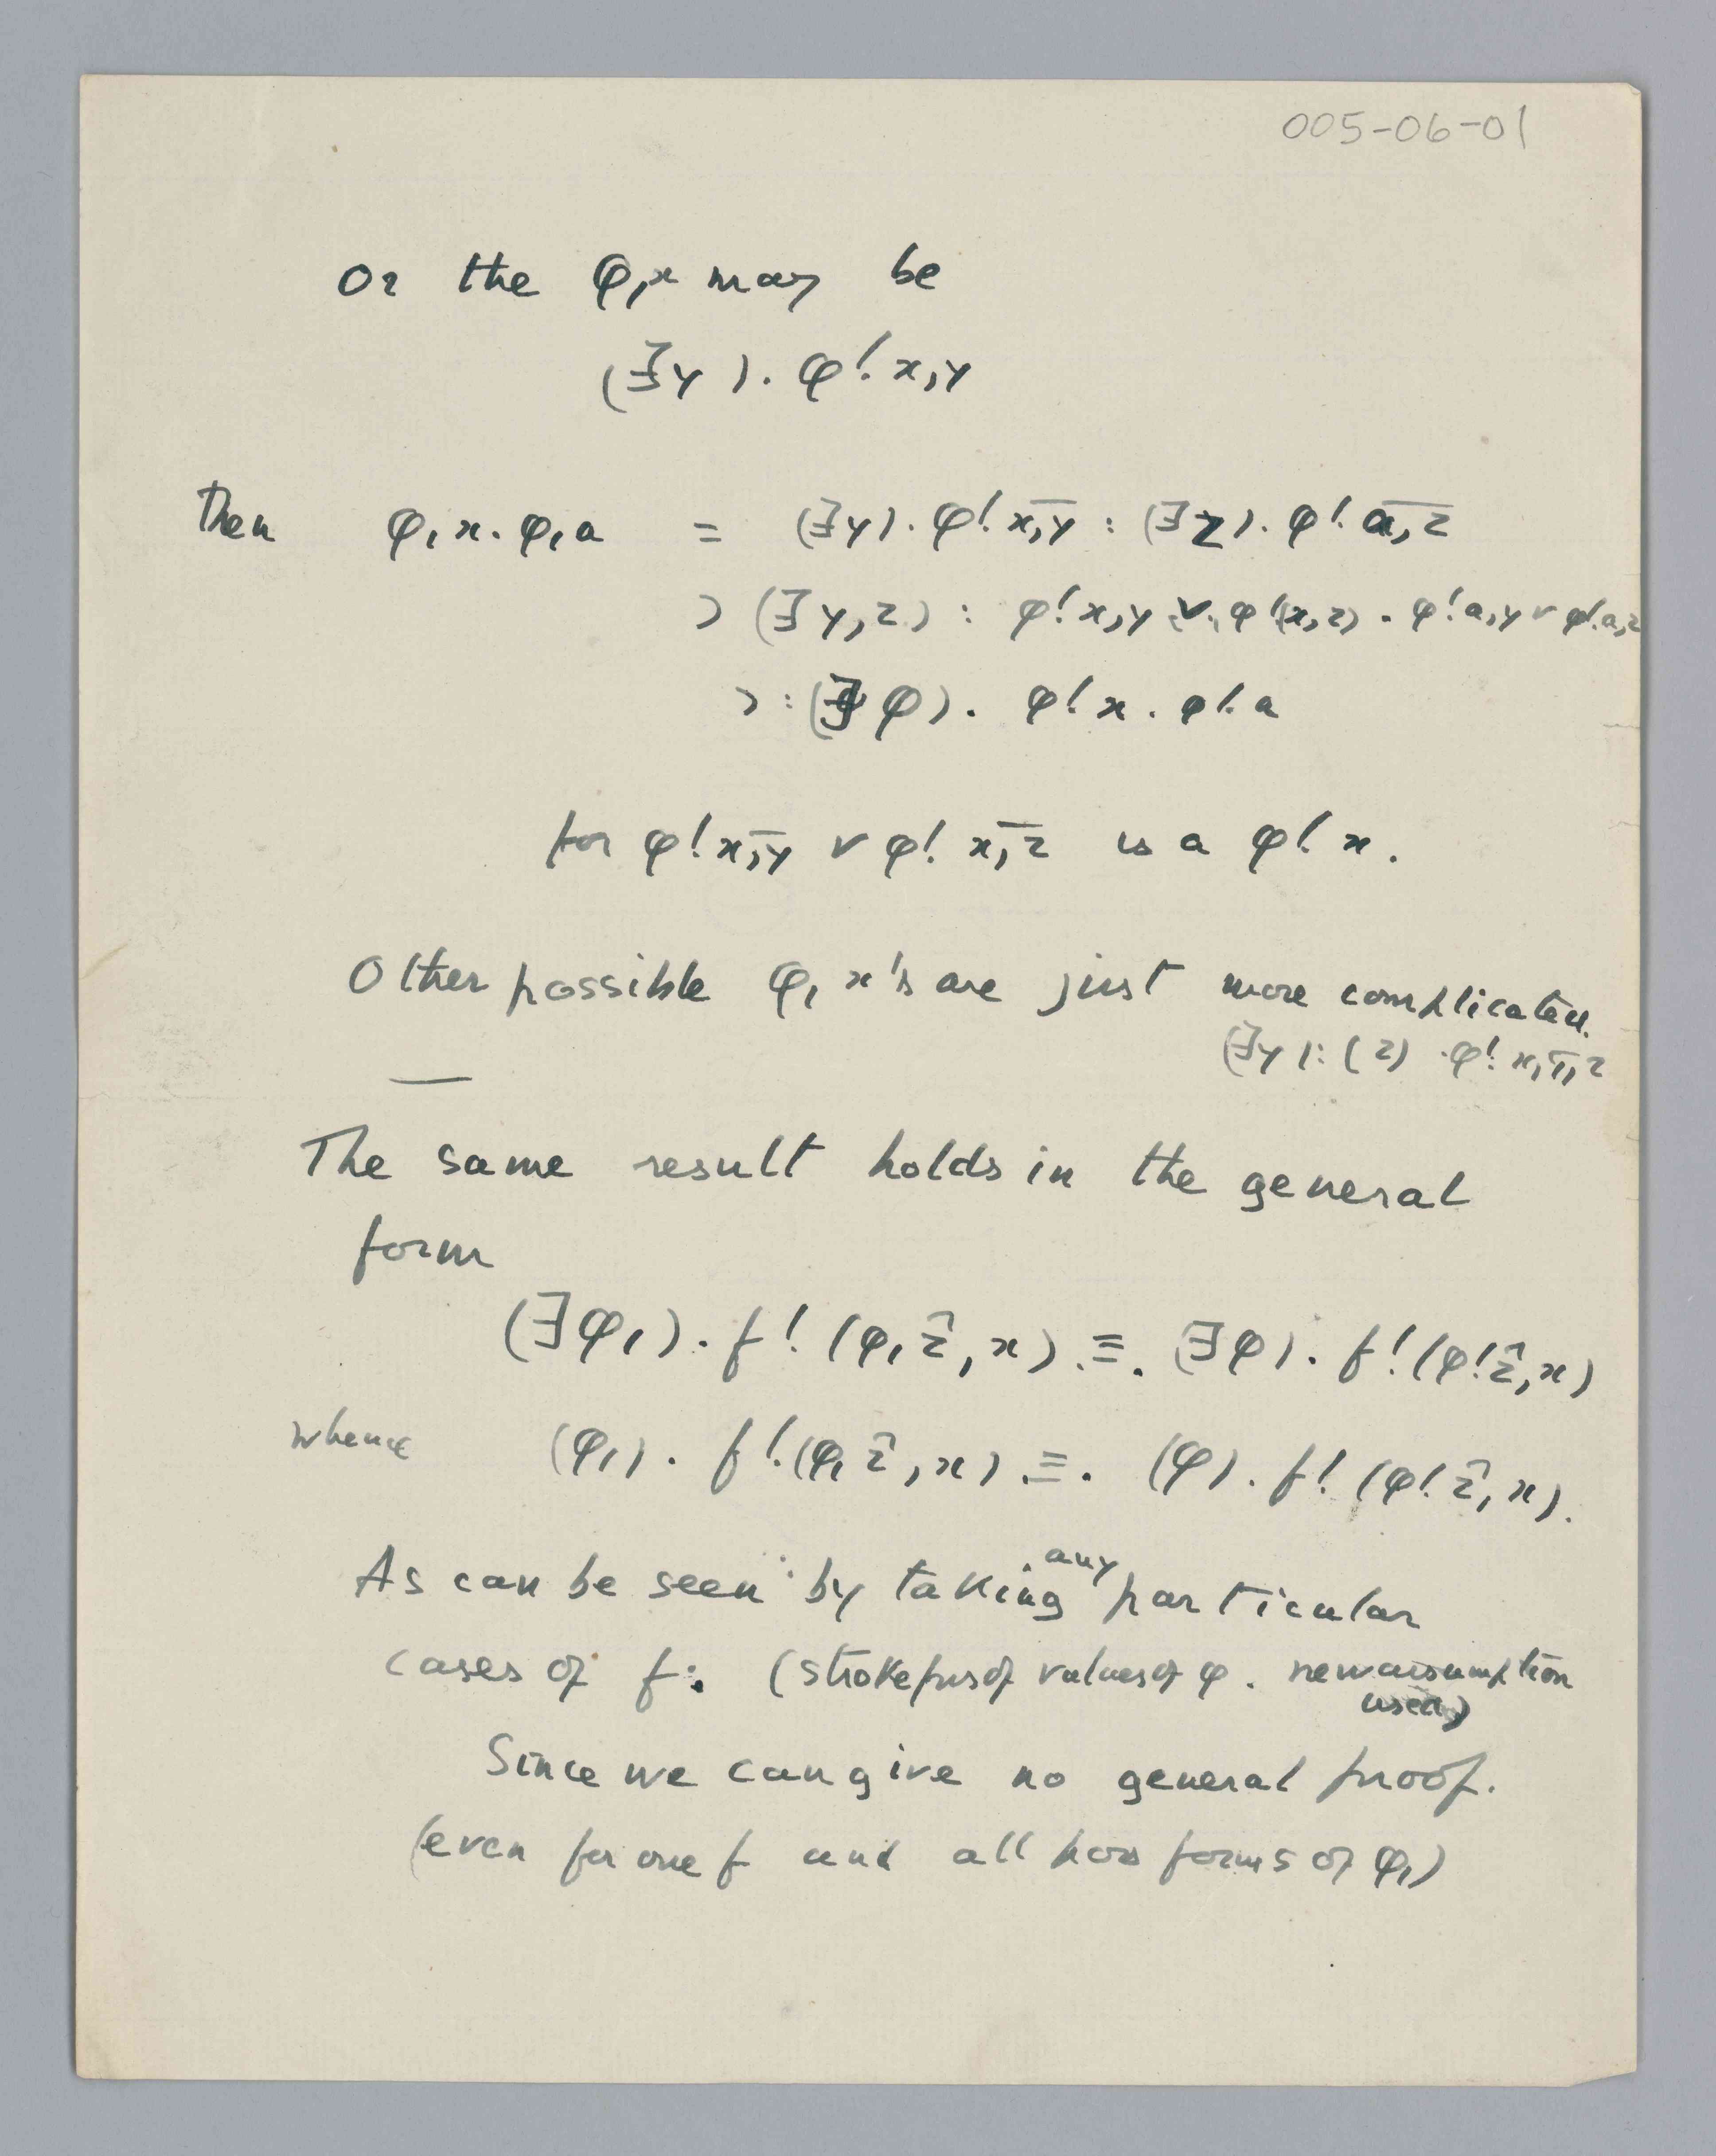 005-06-01
Or the φ₁x may be
(∃y). φ! x,y
Then φ₁x . φ₁a = (∃y). φ! x,y : (∃z). φ! a,z
⊃ (∃y,z) : φ! x,y .∨. φ!(x,z) . φ! a,y ∨ φ! a,z
⊃ : (∃φ). φ! x . φ! a
for φ! x,y ∨ φ! x,z is a φ! x.
Other possible φ₁x's are just more complicated.
(∃y) : (z) . φ! x,y,z
The same result holds in the general
form
(∃φ₁). f! (φ₁ẑ, x) .≡. (∃φ). f! (φ!ẑ, x)
whence (φ₁). f! (φ₁ẑ, x) .≡. (φ). f! (φ!ẑ, x).
As can be seen by taking any particular
cases of f: (stroke fns of values of φ. new assumption
used)
Since we can give no general proof.
(even for one f and all forms of φ₁)